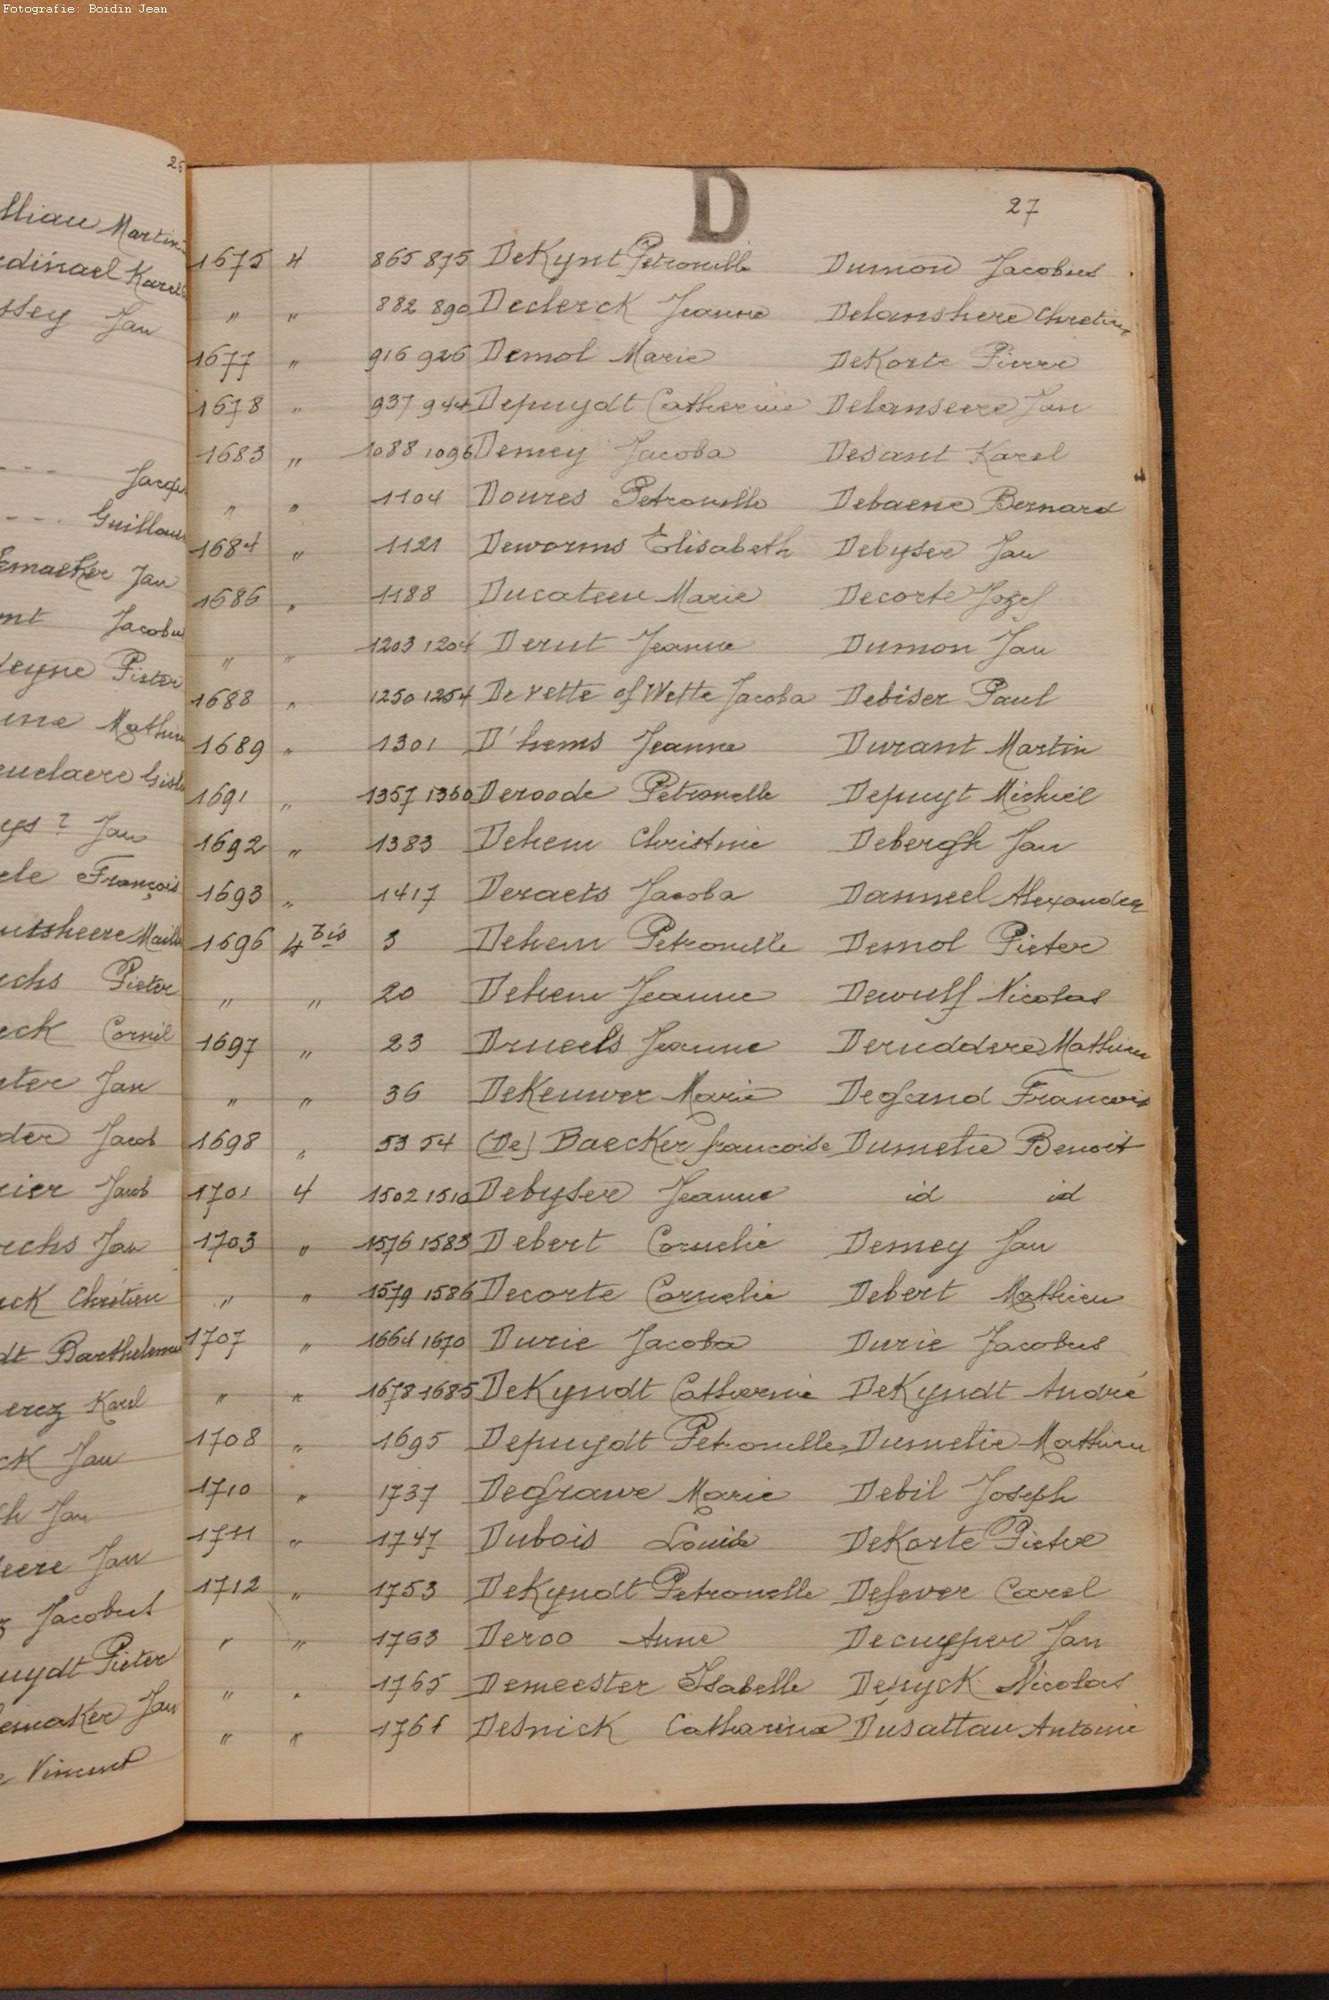 Fotografie: Boidin Jean
lliau Martin
dinael Karel
ssey Jan
Jacques
Guillaume
Emaeker Jan
nt Jacobus
leyne Pieter
Mathieu
uclaere
ys ? Jan
ele François
utsheere
chs Pieter
eck Cornil
ter Jan
der Jacob
rier Jacob
echs Jan
eck Chrétien
dt Barthelemi
erez Karel
ck Jan
ch Jan
eere Jan
Jacobus
uydt Pieter
emaker Jan
Vincent
D
27
1675 4 865 875 DeKynt Petronille Dumon Jacobus
" " 882 890 Declerck Jeanne Delanshere Chretien
1677 " 916 926 Demol Marie DeKorte Pierre
1678 " 937 944 Depuydt Catherine Delanseere Jan
1683 " 1088 1096 Demey Jacoba Desant Karel
" " 1104 Doures Petronille Debaene Bernard
1684 " 1121 Deworms Elisabeth Debyser Jan
1686 " 1188 Ducateeu Marie Decorte Jozef
" " 1203 1204 Derut Jeanne Dumon Jan
1688 " 1250 1254 De vette of Wette Jacoba Debiser Paul
1689 " 1301 D'hems Jeanne Durant Martin
1691 " 1357 1360 Deroode Petronelle Depuyt Michiel
1692 " 1383 Dehem Christine Debergh Jan
1693 " 1417 Deraets Jacoba Danneel Alexander
1696 4 bis 3 Dehem Petronille Demol Pieter
" " 20 Dehem Jeanne Dewulf Nicolas
1697 " 23 Drueels Jeanne Deruddere Mathieu
" " 36 DeKeuwer Marie Degand Francois
1698 " 53 54 (De) Baecker francoise Dumelie Benoit
1701 4 1502 1510 Debyser Jeanne id id
1703 " 1576 1583 Debert Cornelie Demey Jan
" " 1579 1586 Decorte Cornelie Debert Mathieu
1707 " 1664 1670 Durie Jacoba Durie Jacobus
" " 1678 1685 DeKyndt Catherine DeKyndt André
1708 " 1695 Depuydt Petronille Dumelie Mathieu
1710 " 1737 Degrawe Marie Debil Joseph
1711 " 1747 Dubois Louise DeKorte Pieter
1712 " 1753 DeKyndt Petronelle Defever Carel
" " 1763 Deroo Anne Decuyper Jan
" " 1765 Demeester Isabelle Deryck Nicolas
" " 1766 Desnick Catharina Dusattau Antoine